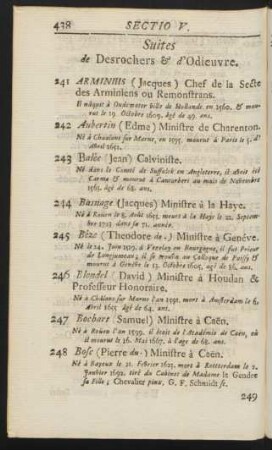 438 SECTIO V.
Suites
de Desrochers & d'Odieuvre.
241 ARMINIUS (Jacques) Chef de la Secte
des Arminiens ou Remonstrans.
Il nâquit à Oudewater ville de Hollande en 1560. & mou-
rut le 19. Octobre 1609. âgé de 49. ans.
242 Aubertin (Edme) Ministre de Charenton.
Né à Chaalons sur Marne, en 1595. mourut à Paris le 5. d'
Avril 1652.
243 Balée (Jean) Calviniste.
Né dans le Comté de Suffolck en Angleterre, il étoit
Carme & mourut à Cantorberi au mois de Novembre
1563. âgé de 68. ans.
244 Basnage (Jacques) Ministre à la Haye.
Né à Rouen le 8. Août 1653. mourut à la Haye le 22. Septem-
bre 1723 dans sa 71. année.
245 Bèze (Theodore de.) Ministre à Genéve.
Né le 24. Juin 1519. à Vezelay en Bourgogne, il fut Prieur
de Longjumeau; il se trouva au Colloque de Poissy &
mourut à Genéve le 13. Octobre 1605. âgé de 86. ans.
246 Blondel (David) Ministre à Houdan &
Professeur Honoraire.
Né à Châlons sur Marne l'an 1591. mort à Amsterdam le 6.
Avril 1655 âgé de 64. ans.
247 Bochart Samuel) Ministre à Caën.
Né à Roüen l'an 1599. il étoit de l'Académie de Caën, où
il mourut le 16. Mai 1667. à l'age de 68. ans.
248 Bosc (Pierre du.) Ministre à Caën.
Né à Bayeux le 21. Fevrier 1623. mort à Rotterdam le 2.
Janvier 1692. tiré du Cabinet de Madame le Gendre
sa Fille; Chevalier pinx. G. F. Schmidt sc.
249